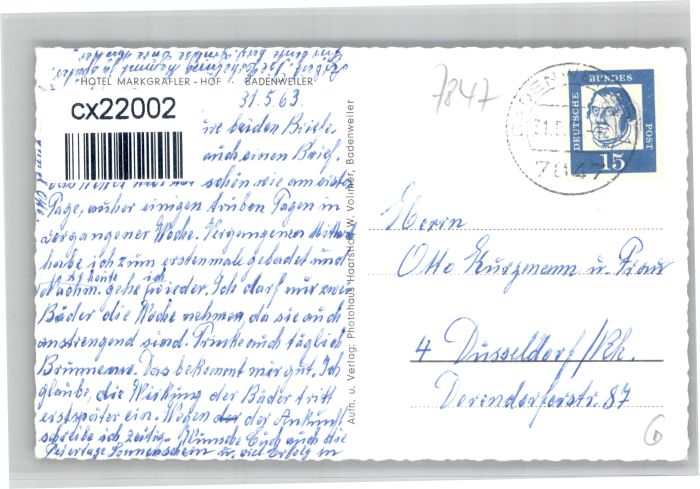 HOTEL MARKGRÄFLER-HOF BADENWEILER
31.5.63.
cx22002
beiden Briefe
auch einen Brief.
schön wie am ersten
Tage, außer einigen trüben Tagen in
vergangener Woche. Vergangenen
habe ich zum erstenmale gebadet und
heute ich
Nachm. gehe wieder. Ich darf nur zwei
Bäder die Woche nehmen, da sie auch
anstrengend sind. Trinke auch täglich
Brunnen. Das bekommt mir gut. Ich
glaube, die Wirkung der Bäder tritt
erst später ein. Wegen der Ankunft
schreibe ich zeitig. Wünsche Euch auch die
Feiertage Sonnenschein u. viel Erfolg in
Aufn. u. Verlag: Photohaus W. Vollmer, Badenweiler
7847
BADENWEILER
31.5.
7847
DEUTSCHE BUNDES POST
15
Herrn
Otto Kurzmann u. Frau
4 Düsseldorf/Rh.
Derendorferstr. 87
6